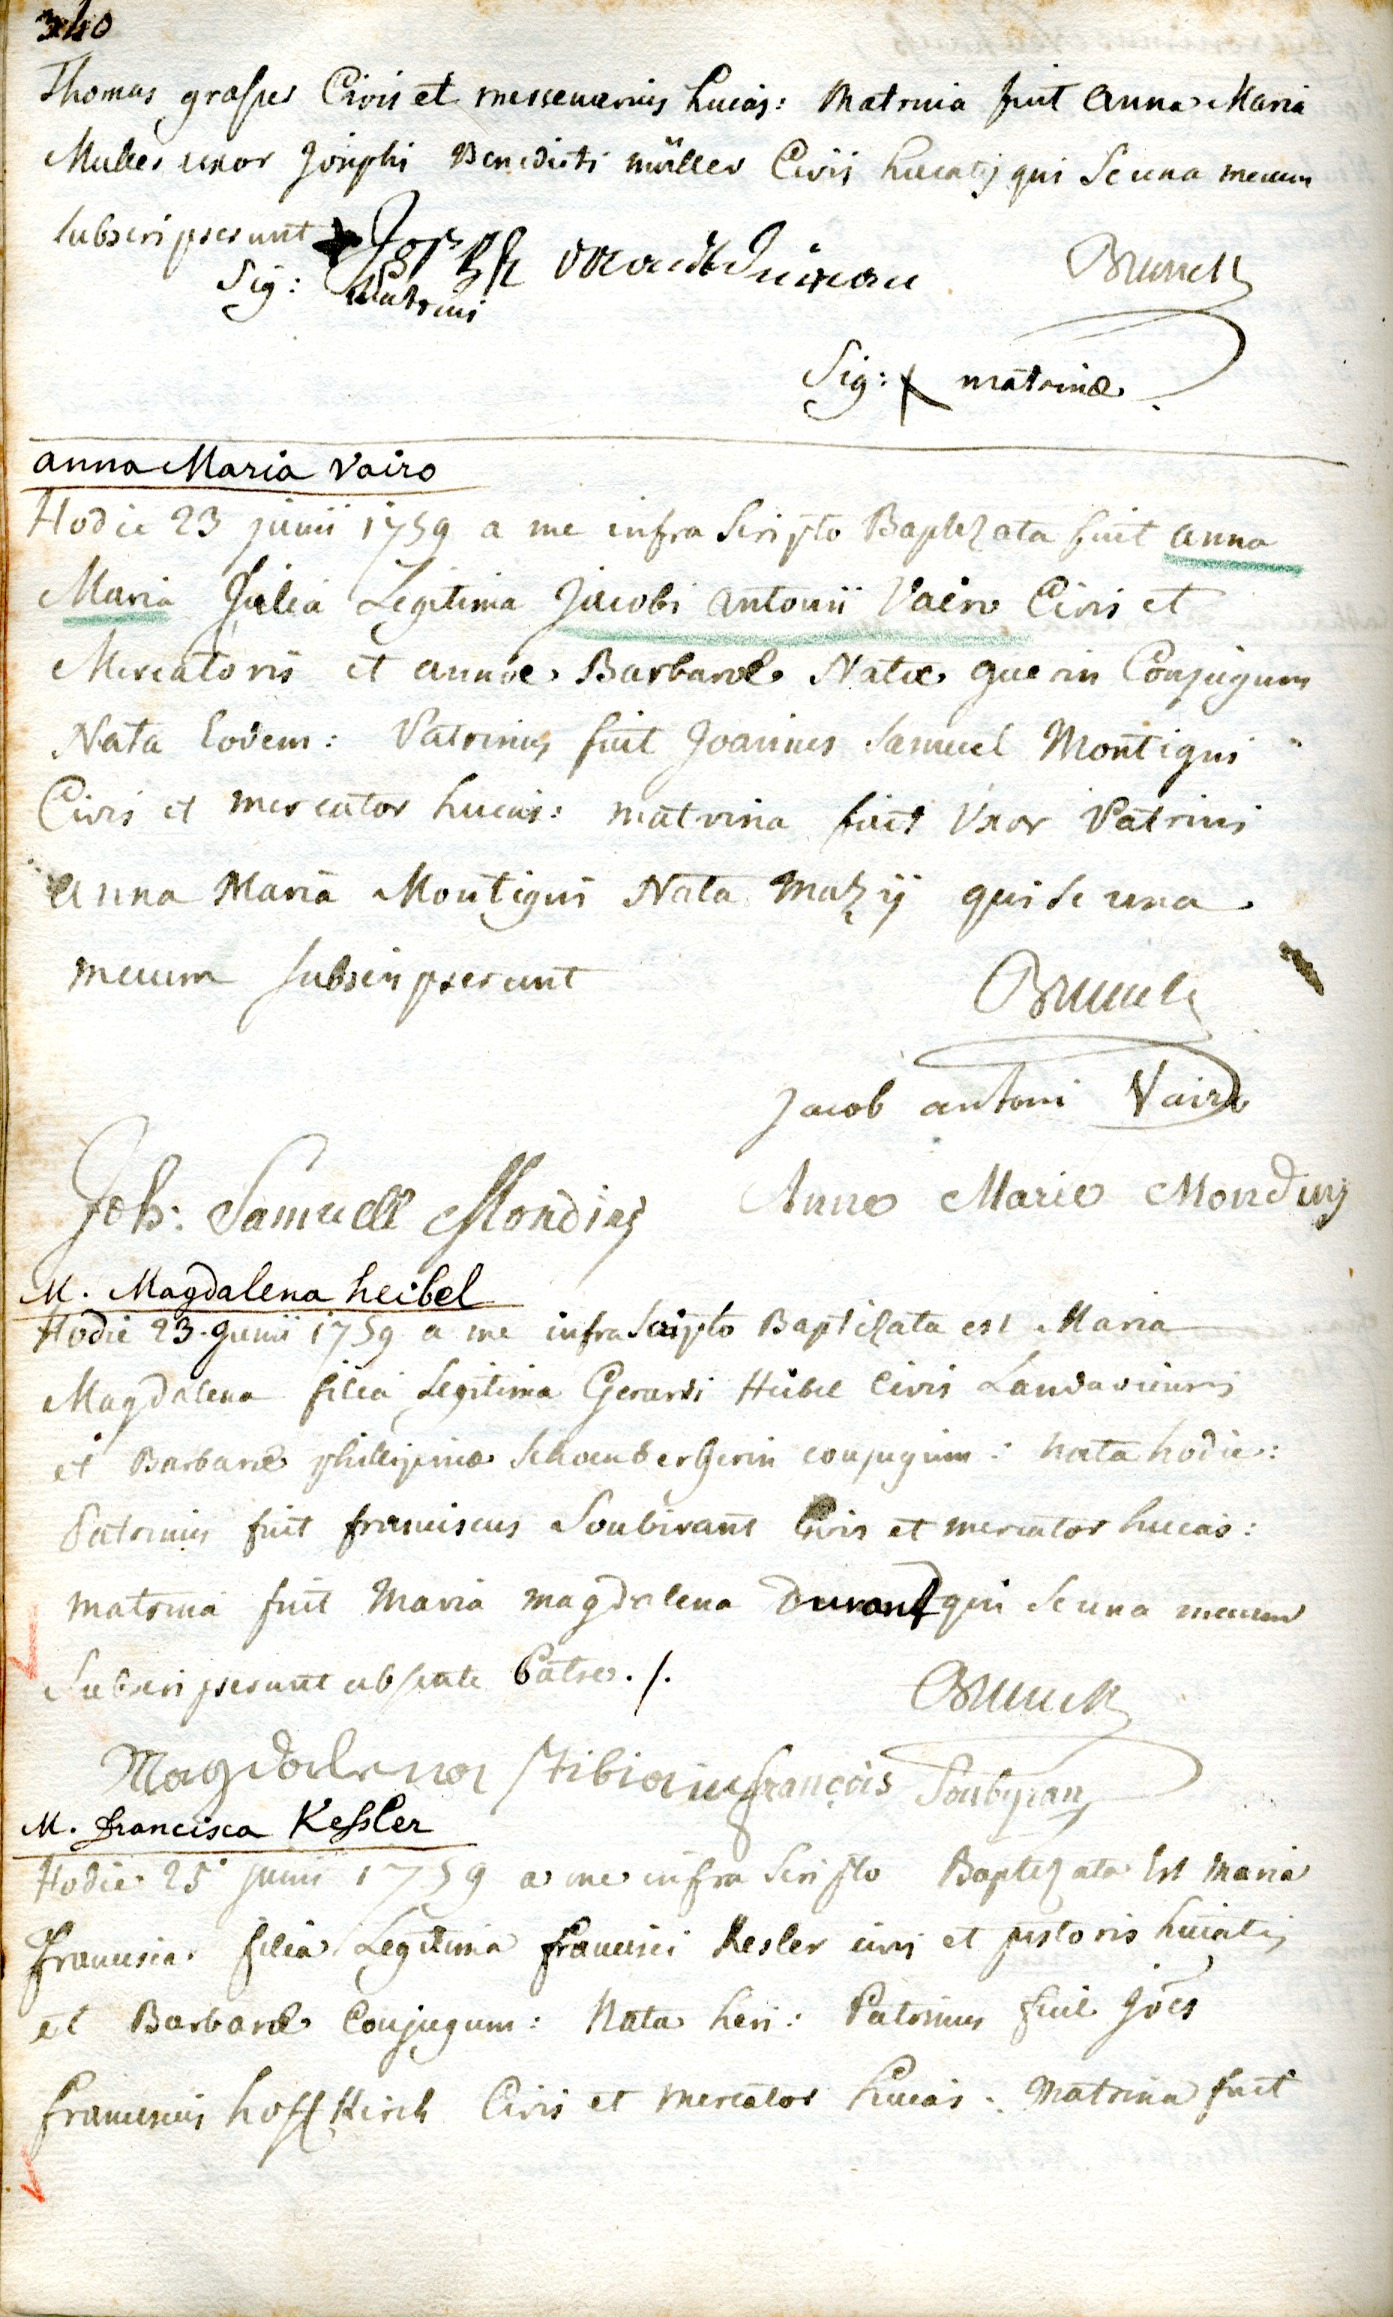 340
Thomas grasser Civis et mercenarius hucas: Matrina fuit anna Maria
Muller uxor Josephi Benedicti müller Civis huiatis qui se una mecum
subscripserunt
Sig: Patrini
Brunck
Sig: x matrinæ
anna Maria Vairo
Hodie 23 junii 1759 a me infra Scripto Baptizata fuit anna
Maria Filia Legitima Jacobi antonii Vairo Civis et
Mercatoris et annæ Barbaræ Natæ guerin Conjugum
Nata Eodem: Patrinus fuit Joannes Samuel Montigni
Civis et mercator hucas: matrina fuit Uxor Patrini
anna Maria Montigni Nata Mazij qui se una
mecum subscripserunt
Brunck
Jacob antoni Vairo
Joh: Samuell Mondini
Anna Maria Mondini
M. Magdalena heibel
Hodie 23 Junii 1759 a me infra Scripto Baptizata est Maria
Magdalena filia Legitima Gerardi Hübel Civis Landaviensis
et Barbaræ phillipinæ Schoenbergerin conjugum: nata hodie:
Patrinus fuit franciscus Soubirant Civis et mercator hucas:
matrina fuit Maria magdalena Durant qui se una mecum
Subscripserunt absente Patre ./.
Brunck
Magdalena françois Soubyran
M. francisca Kessler
Hodie 25 junii 1759 a me infra Scripto Baptizata Est Maria
francisca filia Legitima francisci Kesler civis et pistoris huiatis
et Barbaræ Conjugum: Nata heri: Patrinus fuit Jöes
franciscus hoffkirch Civis et mercator hucas: Matrina fuit